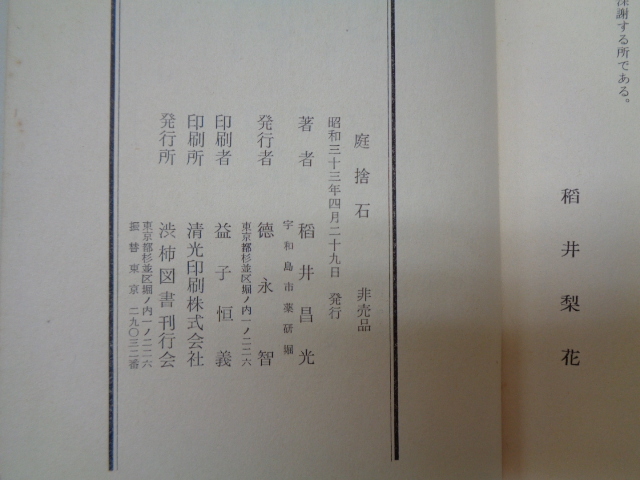 深謝する所である。
稲井梨花
庭捨石 非売品
昭和三十三年四月二十九日 発行
著者 稲井昌光
宇和島市薬研堀
発行者 徳永智
東京都杉並区堀ノ内一ノ二二六
印刷者 益子恒義
印刷所 清光印刷株式会社
発行所 渋柿図書刊行会
東京都杉並区堀ノ内一ノ二二六
振替東京二九〇三二番